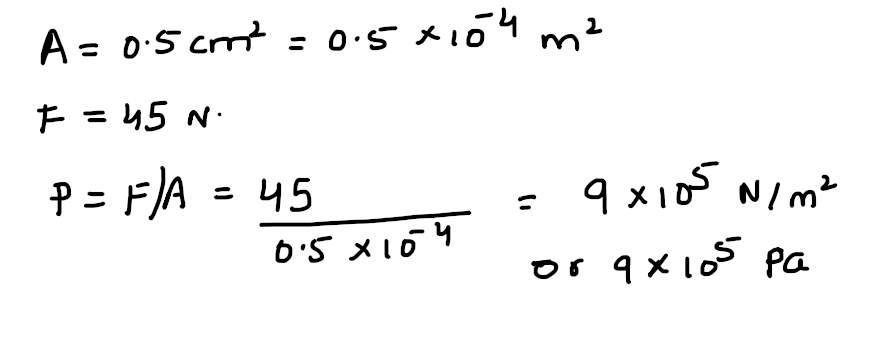 A = 0.5 cm² = 0.5 × 10⁻⁴ m²
F = 45 N.
P = F/A = 45 / 0.5 × 10⁻⁴ = 9 × 10⁵ N/m²
or 9 × 10⁵ Pa